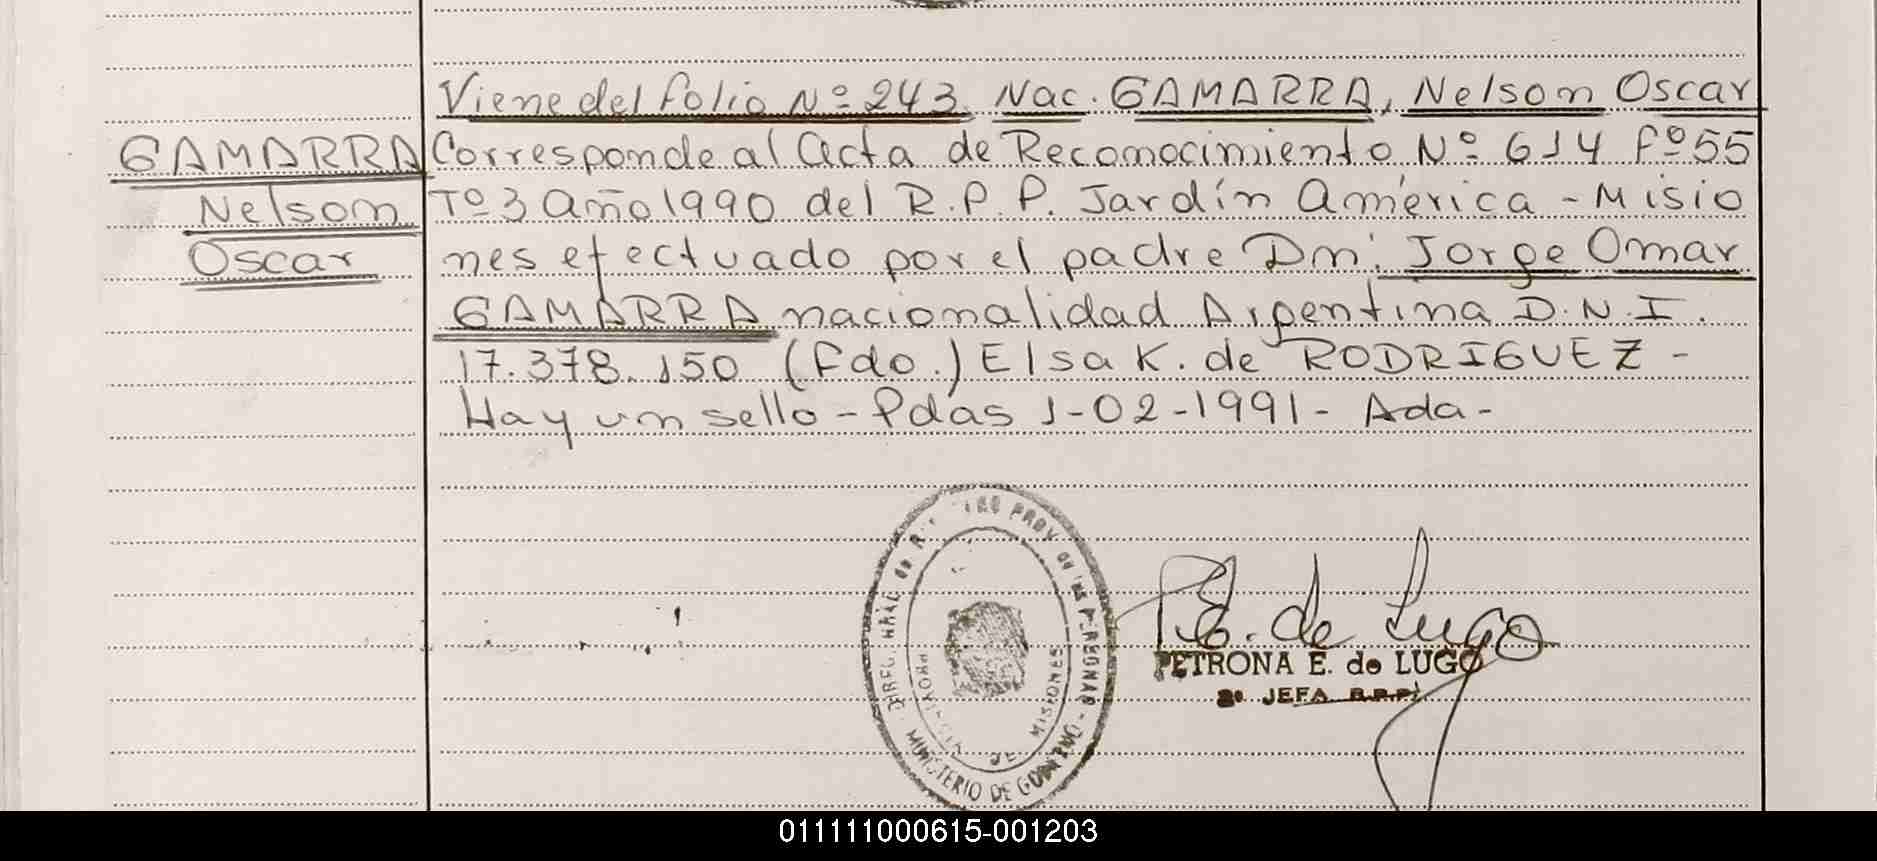 Viene del folio Nº 243. Nac. GAMARRA, Nelson Oscar
GAMARRA
Nelson
Oscar
Corresponde al Acta de Reconocimiento Nº 614 fº 55
Tº 3 Año 1990 del R.P.P. Jardín América - Misio
nes efectuado por el padre Dn: Jorge Omar
GAMARRA nacionalidad Argentina D.N.I.
17.378.150 (fdo.) Elsa K. de RODRIGUEZ -
Hay un sello - Pdas 1-02-1991 - Ada -
DIREC. GRAL de PROV de las PERSONAS
MINISTERIO DE GOBIERNO
PROVINCIA DE MISIONES
P. E. de Lugo
PETRONA E. de LUGO
2º JEFA R.P.P.
011111000615-001203